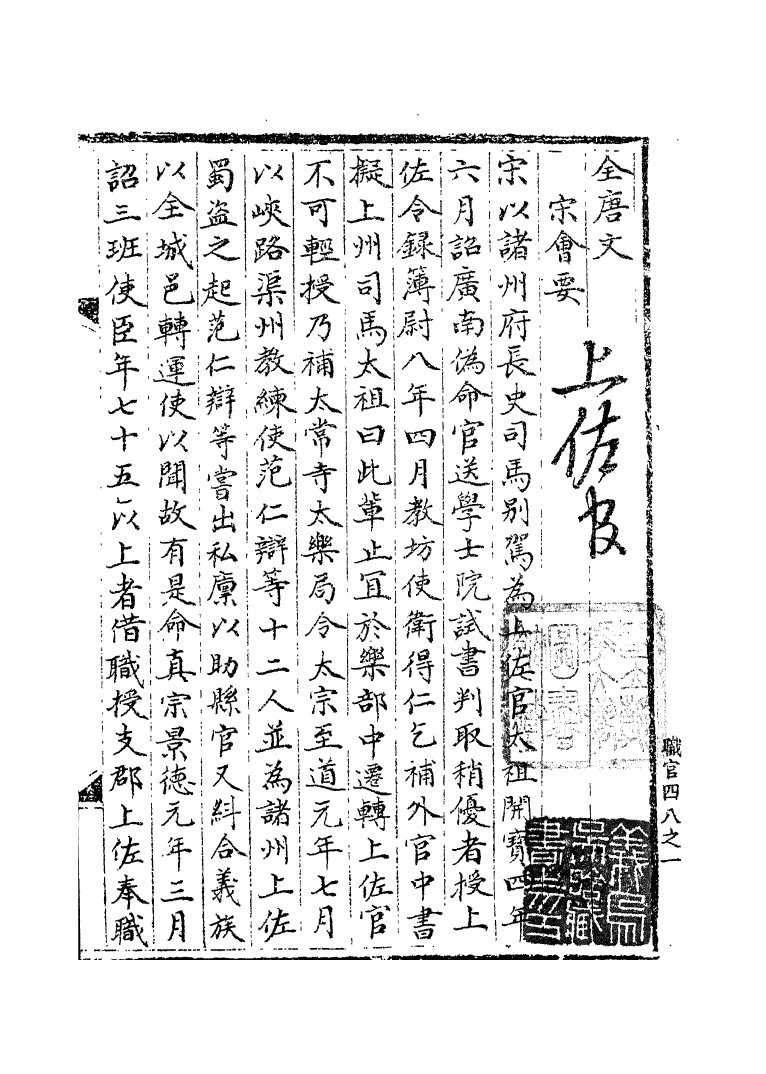 全唐文
宋會要
上佐官
宋以諸州府長史司馬别駕為上佐官太祖開寶四年
六月詔廣南偽命官送學士院試書判取稍優者授上
佐令録簿尉八年四月教坊使衛得仁乞補外官中書
擬上州司馬太祖曰此輩止宜於樂部中遷轉上佐官
不可輕授乃補太常寺太樂局令太宗至道元年七月
以峽路渠州教練使范仁辯等十二人並為諸州上佐
蜀盗之起范仁辯等嘗出私廩以助縣官又糾合義族
以全城邑轉運使以聞故有是命真宗景德元年三月
詔三班使臣年七十五以上者借職授支郡上佐奉職
職官四八之一